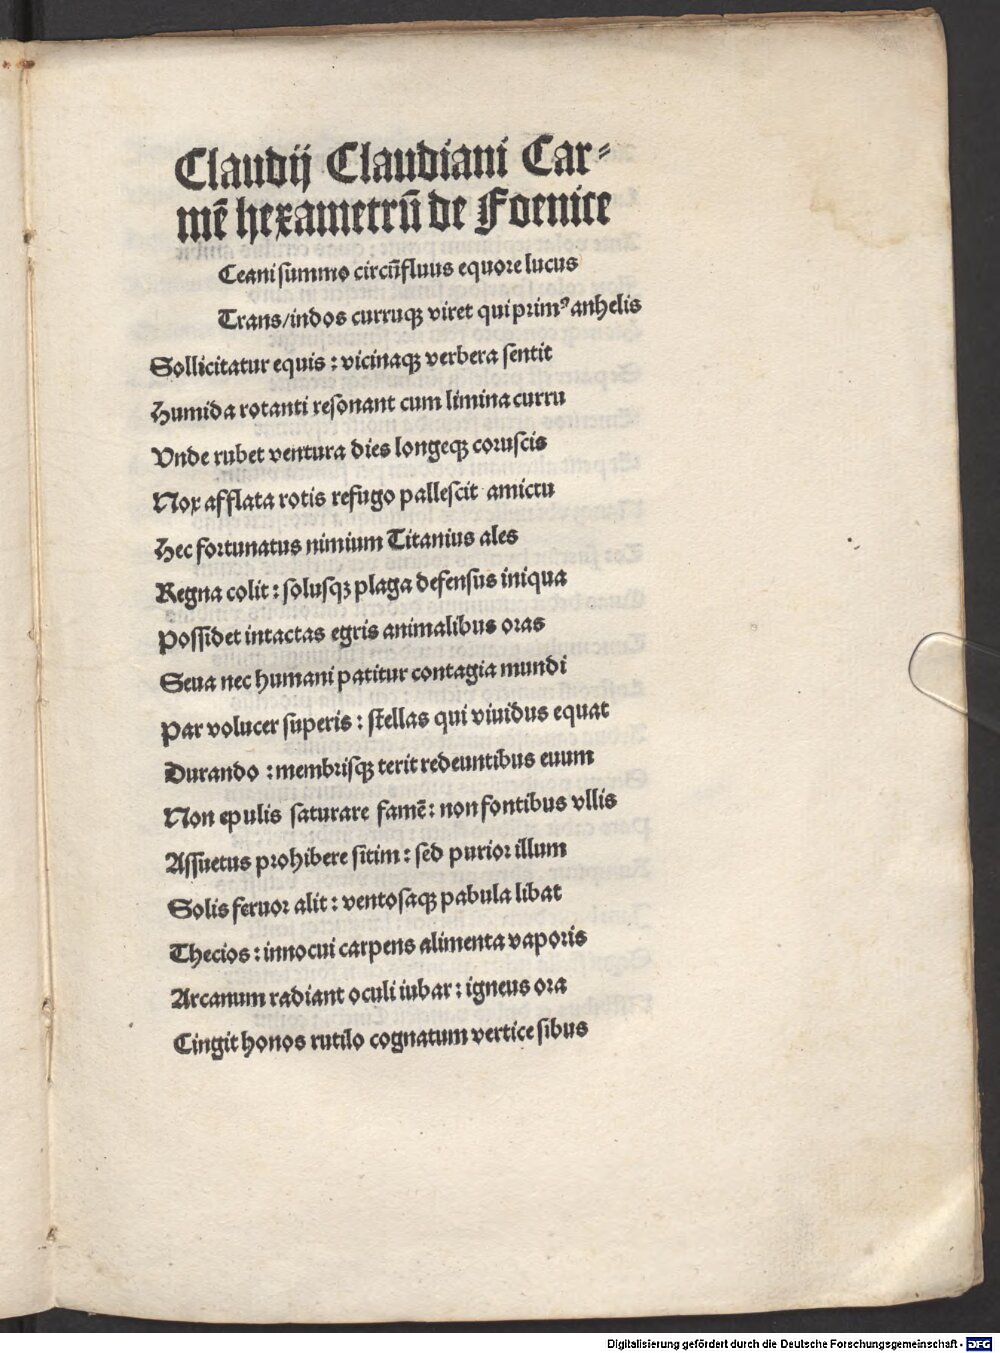 Claudij Claudiani Car⸗
mē hexametrū de Foenice
Ceani summo circūfluus equore lucus
Trans/indos curruqꝫ viret qui primꝰ anhelis
Sollicitatur equis : vicinaqꝫ verbera sentit
Humida rotanti resonant cum limina curru
Vnde rubet ventura dies longeqꝫ coruscis
Nox afflata rotis refugo pallescit amictu
Hec fortunatus nimium Titanius ales
Regna colit : solusqꝫ plaga defensus iniqua
Possidet intactas egris animalibus oras
Seua nec humani patitur contagia mundi
Par volucer superis : stellas qui viuidus equat
Durando : membrisqꝫ terit redeuntibus euum
Non epulis saturare famē : non fontibus vllis
Assuetus prohibere sitim : sed purior illum
Solis feruor alit : ventosaqꝫ pabula libat
Thecios : innocui carpens alimenta vaporis
Arcanum radiant oculi iubar : igneus ora
Cingit honos rutilo cognatum vertice sibus
Digitalisierung gefördert durch die Deutsche Forschungsgemeinschaft - DFG